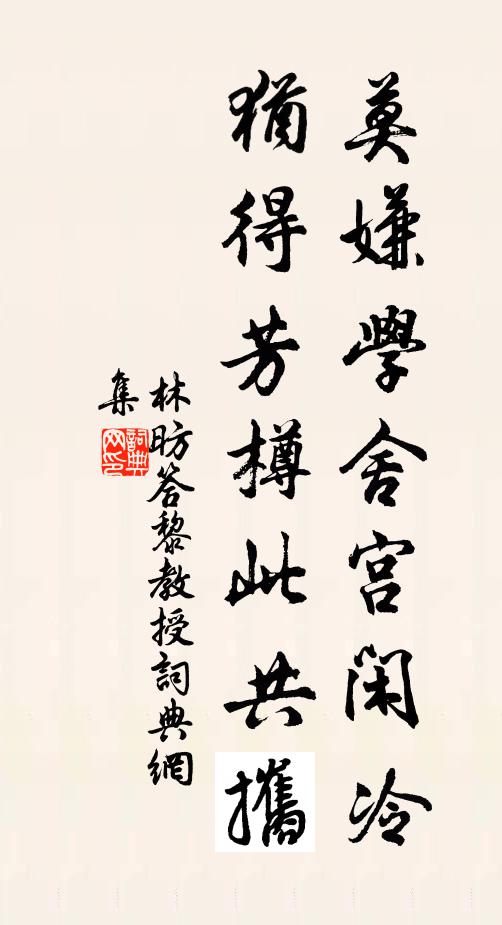 莫嫌學舍宫閑冷
猶得芳樽此共攜
林昉答黎教授詞典網
集
詞典網印